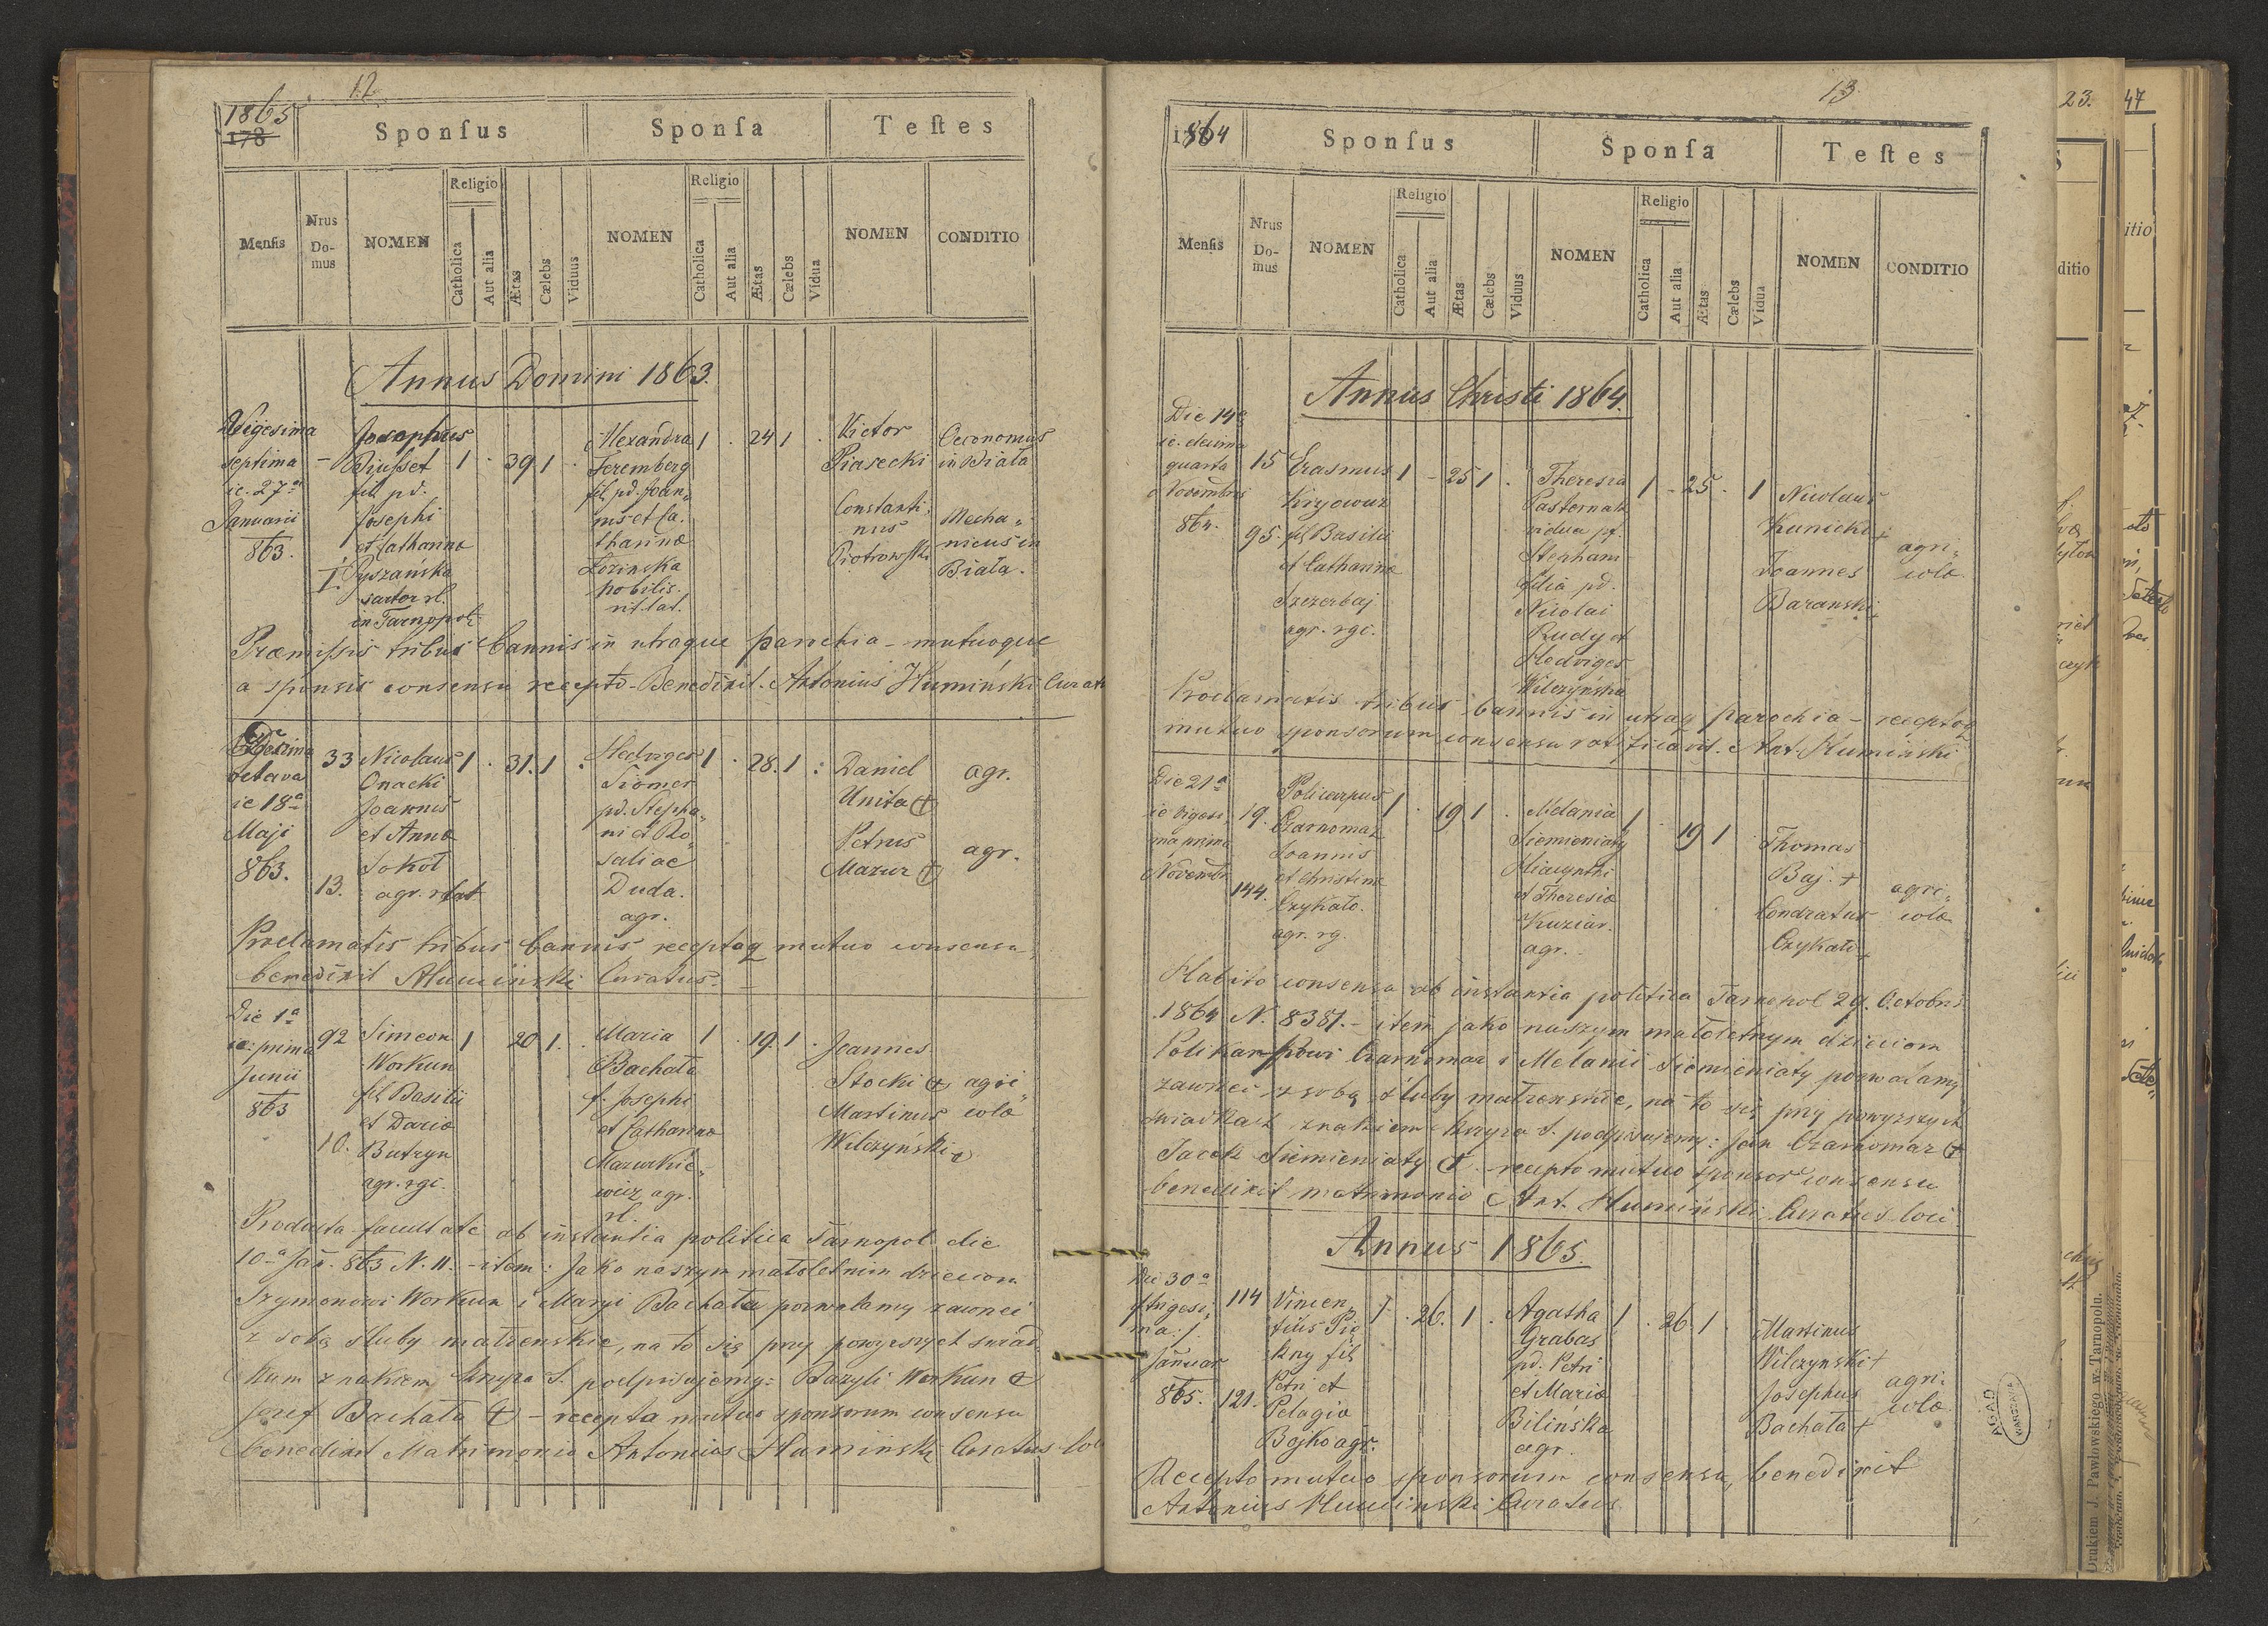 12
1865
178
Sponſus
Sponſa
Teſtes
Menſis
Nrus Domus
NOMEN
Religio
Catholica
Aut alia
Ætas
Cælebs
Viduus
NOMEN
Religio
Catholica
Aut alia
Ætas
Cælebs
Vidua
NOMEN
CONDITIO
Annus Domini 1863.
Vigesima
septima
ie. 27a
Januarii
863.
I
Josephus
fil. pd.
Josephi
et Catharinæ
sartor rl.
in Tarnopol
1 . 39 1 .
Alexandra
Feremberg
fil. pd. Joan„
nis et Ca„
tharinæ
Łozinska
nobilis.
rit. lat.
1 . 24 1 .
Victor
Piasecki
Constanti„
nus
Piotrowski
Oeconomus
in Biała
Mecha„
nicus in
Biała.
Præmissis tribus bannis in utraque parochia - mutuoque
a sponsis consensu recepto - Benedixit. Antonius Humiński Curat
Decima
octava
ie 18a
Maji
863.
33
13.
Nicolaus
Onacki
Joannis
et Annæ
Sokoł
agr. rlat
1 . 31. 1 .
Hedviges
Siomer
pd. Stepha„
ni et Ro„
saliae
Duda.
agr.
1 . 28. 1 :
Daniel
Unita +
Petrus
Mazur +
agr.
agr.
Proclamatis tribus bannis receptaq mutuo consensu
benedixit AHumiński Curatus.
Die 1a
ie: prima
Junii
863
92
10.
Simeon
Workun
fil. Basilii
et Dariæ
Butryn
agr. rgc.
1 20 1 .
Maria
Bachata
f. Josephi
et Catharinæ
Mazurkie„
wicz agr.
rl.
1 . 19. 1 .
Joannes
Stocki +
Martinus
Wilczyński +
agri„
colæ
Producta facultate ab instantia politica Tarnopol die
10a Jan. 863 N. 11. - item: Jako naszym małoletnim dzieciom
Szymonowi Workun i Maryi Bachata pozwalamy zawrzci
z sobą śluby małżenskie, na to się przy powyższych świad„
kam znakiem krzyża S. podpisujemy: Bazyli Workun +
Josef Bachata + - recepta mutuo sponsorum consensu
benedixit Matrimonio Antonius Humiński Curatus loci
13.
1864
Sponſus
Sponſa
Teſtes
Menſis
Nrus Domus
NOMEN
Religio
Catholica
Aut alia
Ætas
Cælebs
Viduus
NOMEN
Religio
Catholica
Aut alia
Ætas
Cælebs
Vidua
NOMEN
CONDITIO
Annus Christi 1864.
Die 14a
ie. decima
quarta
Novembris
864.
15
95.
Erasmus
fil Basilii
et Catharinæ
Szczerbaj
agr. rgc.
1 - 25 1 .
Theresia
Pasternak
vidua pt.
Stephani
filia pd.
Nicolai
Rudy et
Hedviges
Wilczyńska
1 - 25 . 1
Nicolaus
Kunicki +
Joannes
Baranski +
agri„
colæ
Proclamatis tribus bannis in utraq parochia - receptoq
mutuo sponsorum consensu ratificavit. Ant. Humiński
Die 21a
ie vigesi„
ma prima
Novembr
19.
144.
Policarpus
Czarnomaz
Joannis
et Christinæ
Czykało.
agr. rg.
1 . 19 1 .
Melania
Siemieniaty
Hiacynthi
et Theresiæ
Kuziar.
agr.
1 . 19 1 .
Thomas
Baj. +
Condratus
Czykało +
agri„
colæ
Habito consensu ab instantia politica Tarnopol 29. Octobris
1864 N. 8381. - item jako naszym małoletnym dzieciom
Polikarpowi Czarnomaz i Melanii Siemieniaty pozwalamy
zawrzci z sobą śluby małżenskie, na to się przy powyższych
świadkach znakiem krzyża S. podpisujemy: Jan Czarnomaz +
Jacek Siemieniaty + - recepto mutuo sponsor consensu
benedixit matrimonio Ant. Humiński Curatus loci
Annus 1865.
Die 30a
trigesi„
ma
Januar
865.
114
121.
Vincen„
tius Pie
kny fil
Petri et
Pelagiæ
Bojko agr.
1 . 26. 1 .
Agatha
Grabas
pd. Petri
et Mariæ
Bilińska
agr.
1 . 26 1 .
Martinus
Wilczynski +
Josephus
Bachata +
agri„
colæ
Recepto mutuo sponsorum consensu, benedixit
Antonius Humiński Curatus
AGAD
WARSZAWA
23.
47
ditio
itio
Drukiem J. Pawłowskiego w Tarnopolu.